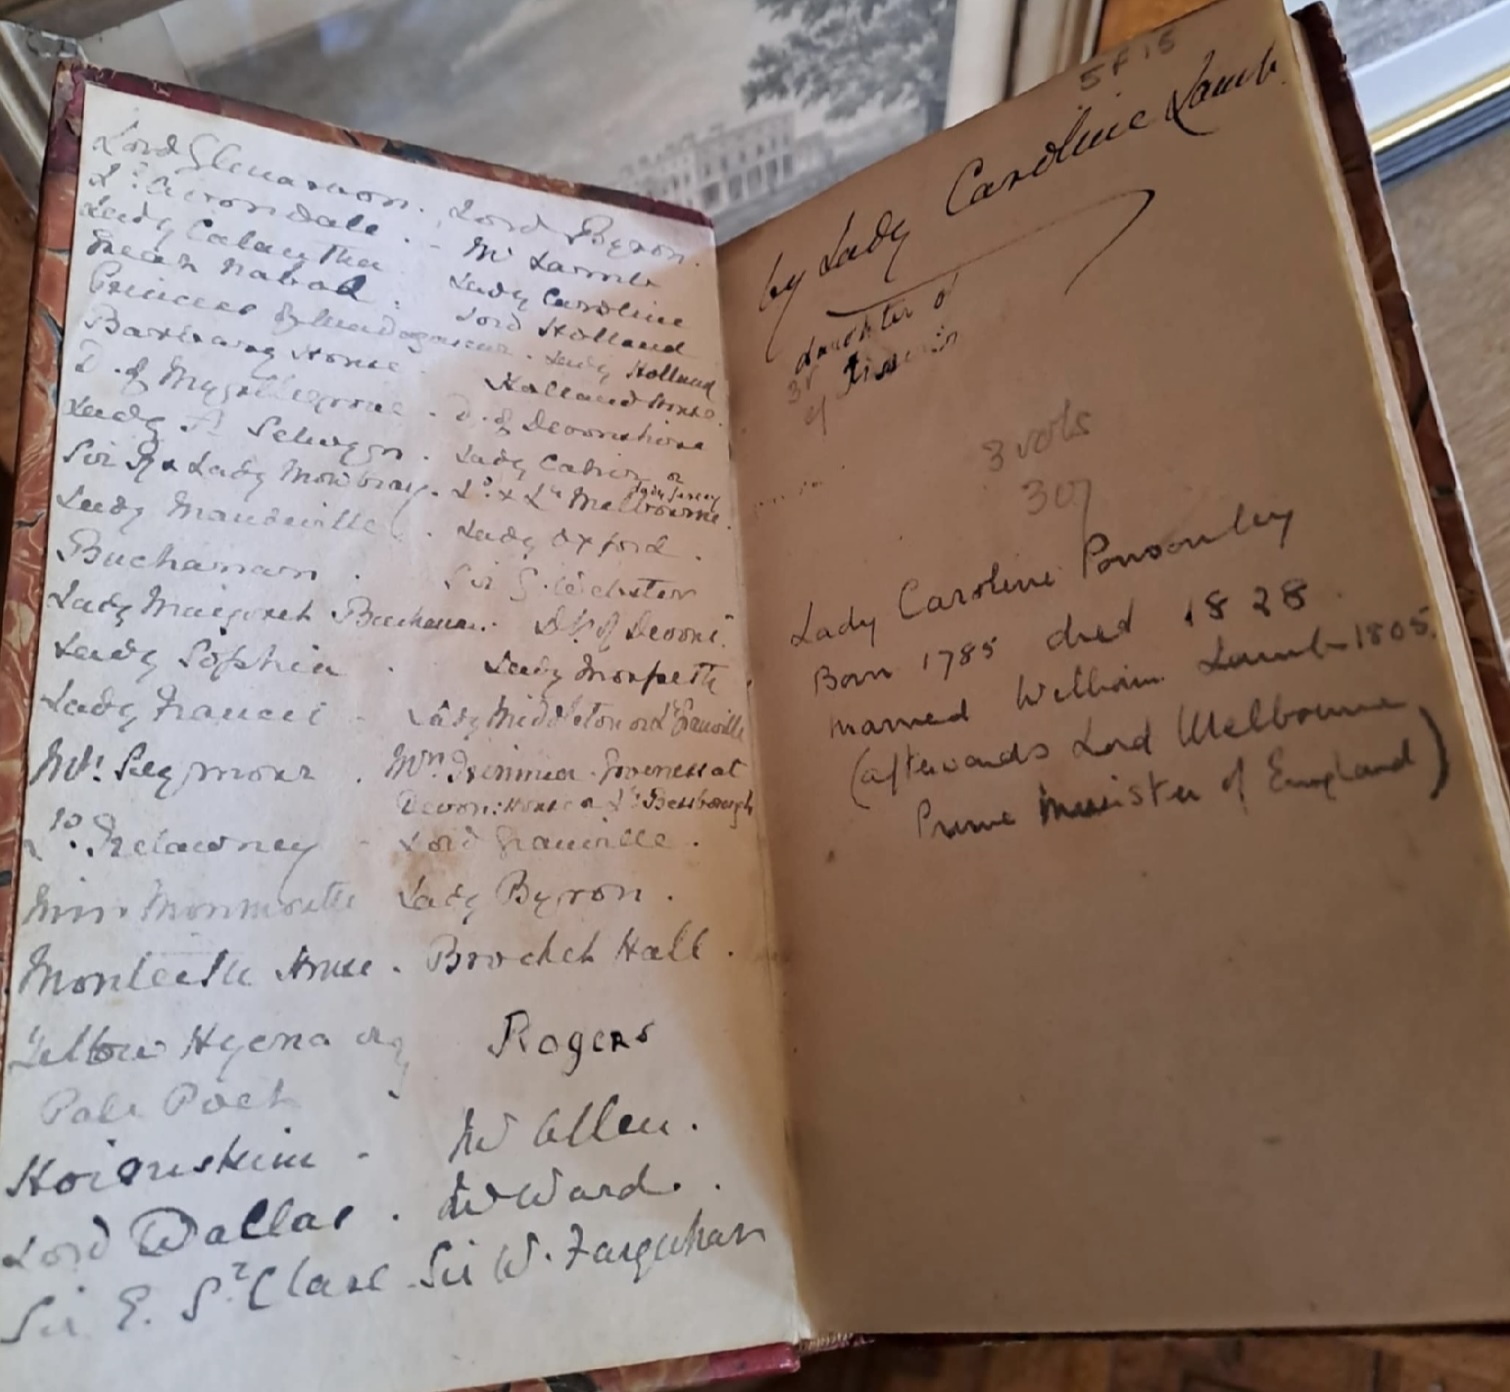 Lord Glenarvon. Lord Byron.
Ld. Avondale. - Mr Lamb
Lady Calantha Lady Caroline
Great Nabob. Lord Holland
Princess of Madagascar. Lady Holland
Barbary House. Holland House.
D. of Myrtlegrove. D. of Devonshire
Lady A Selwyn. Lady Cahir or
Lady Jersey
Sir R & Lady Mowbray. Ld. & Ly Melbourne.
Lady Mandeville. Lady Oxford.
Buchanan. Sir G. Webster
Lady Margaret Buchanan. Ds. of Devons.
Lady Sophia. Lady Morpeth
Lady Frances - Lady Middleton or Ly Granville
Mrs Seymour. Mrs Trimmer. Governess at
Devon: House or Ly Bessborough
Ld. Trelawney - Lord Granville.
Miss Monmouth Lady Byron.
Monteith House. Brocket Hall.
Yellow Hyena or Rogers
Pale Poet
Hoiouskim - Mr Allen.
Lord Dallas. Mr Ward.
Sir E. St Clare - Sir W. Farquhar
5 F 15
by Lady Caroline Lamb
daughter of
3r
of
3 vols
307
Lady Caroline Ponsonby
Born 1785 died 1828.
married William Lamb 1805.
(afterwards Lord Melbourne
Prime Minister of England)